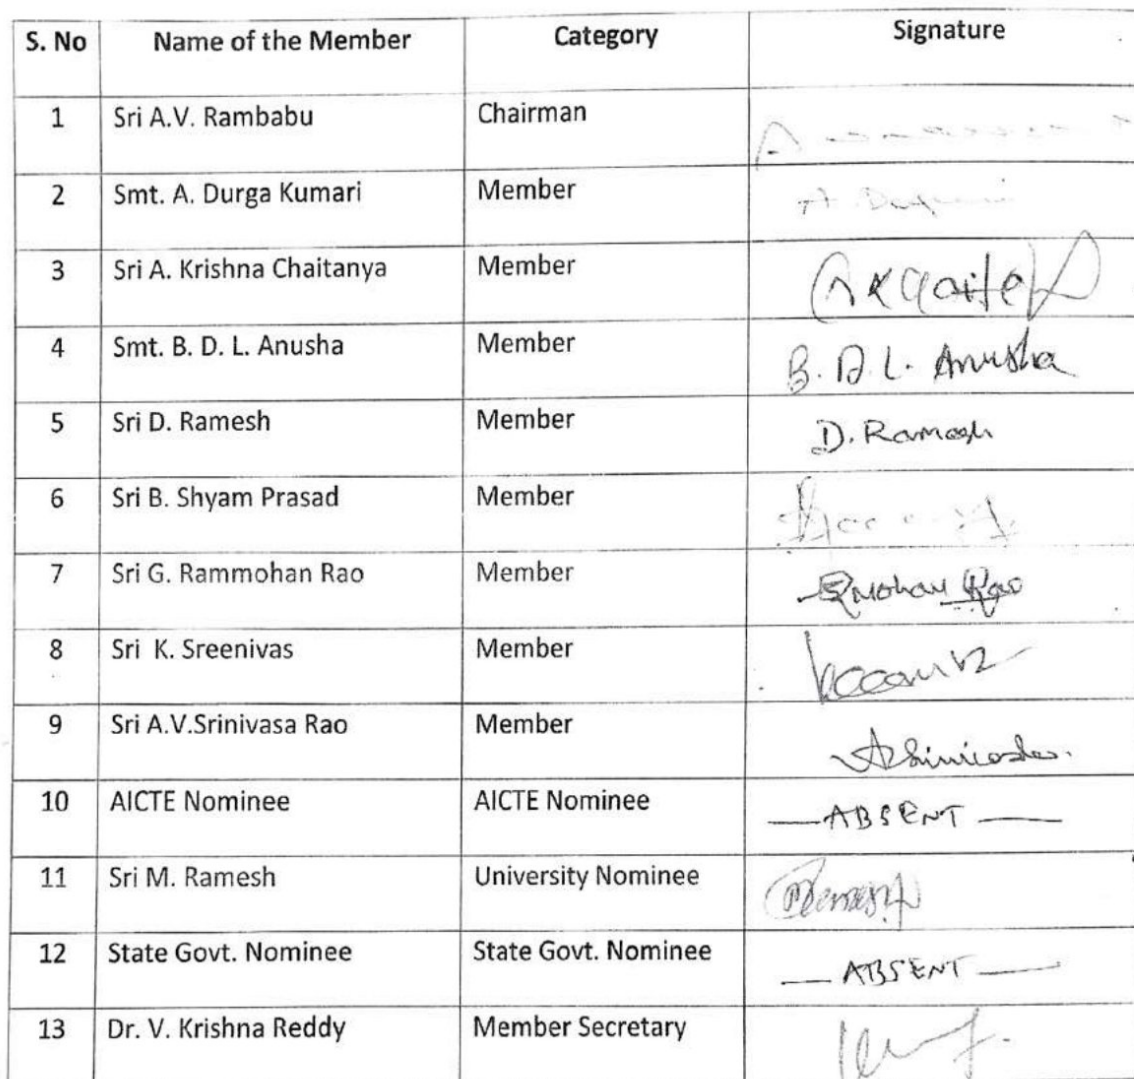 S. No Name of the Member Category Signature
1 Sri A.V. Rambabu Chairman
2 Smt. A. Durga Kumari Member
3 Sri A. Krishna Chaitanya Member
4 Smt. B. D. L. Anusha Member B. D. L. Anusha
5 Sri D. Ramesh Member D. Ramesh
6 Sri B. Shyam Prasad Member
7 Sri G. Rammohan Rao Member
8 Sri K. Sreenivas Member
9 Sri A.V.Srinivasa Rao Member
10 AICTE Nominee AICTE Nominee —ABSENT—
11 Sri M. Ramesh University Nominee
12 State Govt. Nominee State Govt. Nominee —ABSENT—
13 Dr. V. Krishna Reddy Member Secretary